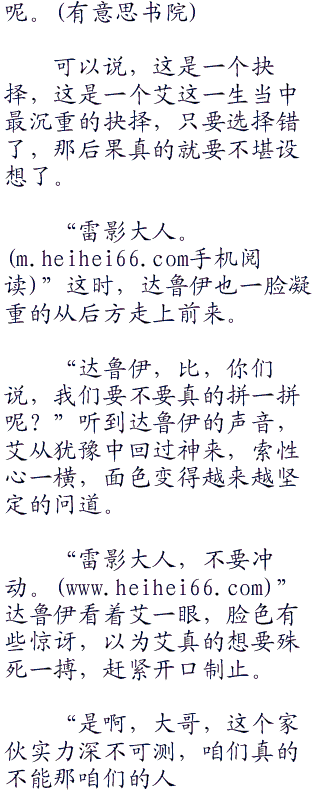 呢。(有意思书院)
可以说，这是一个抉
择，这是一个艾这一生当中
最沉重的抉择，只要选择错
了，那后果真的就要不堪设
想了。
“雷影大人。
(m.heihei66.com手机阅
读)”这时，达鲁伊也一脸凝
重的从后方走上前来。
“达鲁伊，比，你们
说，我们要不要真的拼一拼
呢？”听到达鲁伊的声音，
艾从犹豫中回过神来，索性
心一横，面色变得越来越坚
定的问道。
“雷影大人，不要冲
动。(www.heihei66.com)”
达鲁伊看着艾一眼，脸色有
些惊讶，以为艾真的想要殊
死一搏，赶紧开口制止。
“是啊，大哥，这个家
伙实力深不可测，咱们真的
不能那咱们的人